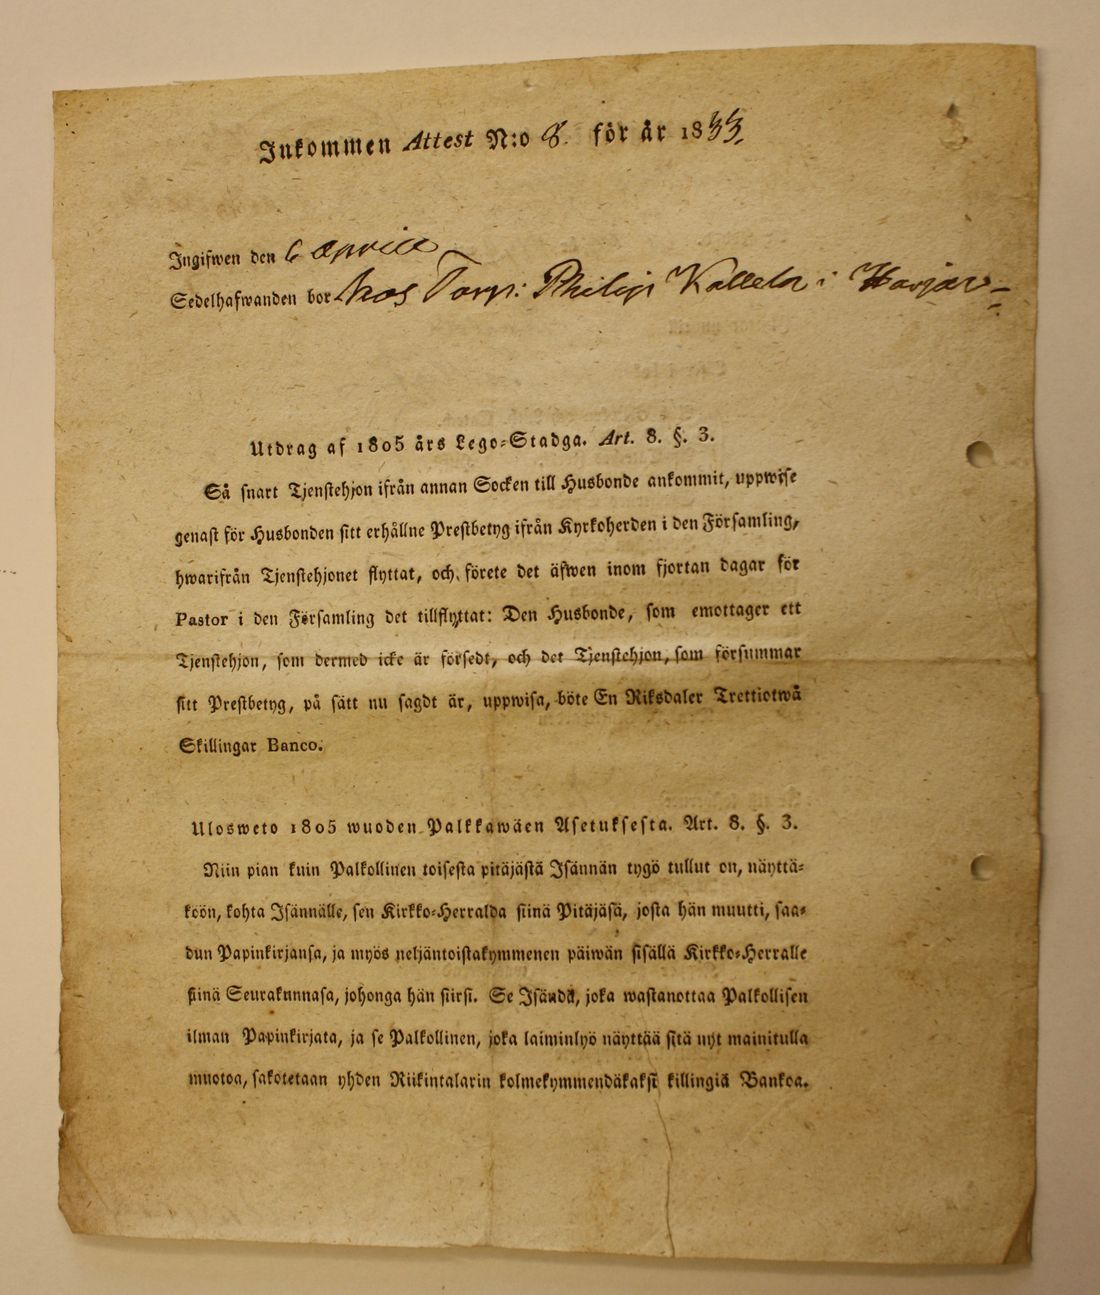 Inkommen Attest N:o 8. för år 1833.
Ingifwen den 6 Aprill
Sedelhafwanden bor hos Torp: Philip Kallela i Harjar=
Utdrag af 1805 års Lego-Stadga. Art. 8. §. 3.
Så snart Tjenstehjon ifrån annan Socken till Husbonde ankommit, uppwise
genast för Husbonden sitt erhållne Prestbetyg ifrån Kyrkoherden i den Församling,
hwarifrån Tjenstehjonet flyttat, och förete det äfwen inom fjortan dagar för
Pastor i den Församling det tillflyttat: Den Husbonde, som emottager ett
Tjenstehjon, som dermed icke är försedt, och det Tjenstehjon, som försummar
sitt Prestbetyg, på sätt nu sagdt är, uppwisa, böte En Riksdaler Trettiotwå
Skillingar Banco.
Ulosweto 1805 wuoden Palkkawäen Asetuksesta. Art. 8. §. 3.
Niin pian kuin Palkollinen toisesta pitäjästä Isännän tygö tullut on, näyttä-
köön, kohta Isännälle, sen Kirkko-Herralda siinä Pitäjäsä, josta hän muutti, saa-
dun Papinkirjansa, ja myös neljäntoistakymmenen päiwän sisällä Kirkko-Herralle
siinä Seurakunnasa, johonga hän siirsi. Se Isändä, joka wastanottaa Palkollisen
ilman Papinkirjata, ja se Palkollinen, joka laiminlyö näyttää sitä nyt mainitulla
muotoa, sakotetaan yhden Riikintalarin kolmekymmendäkaksi killingiä Bankoa.